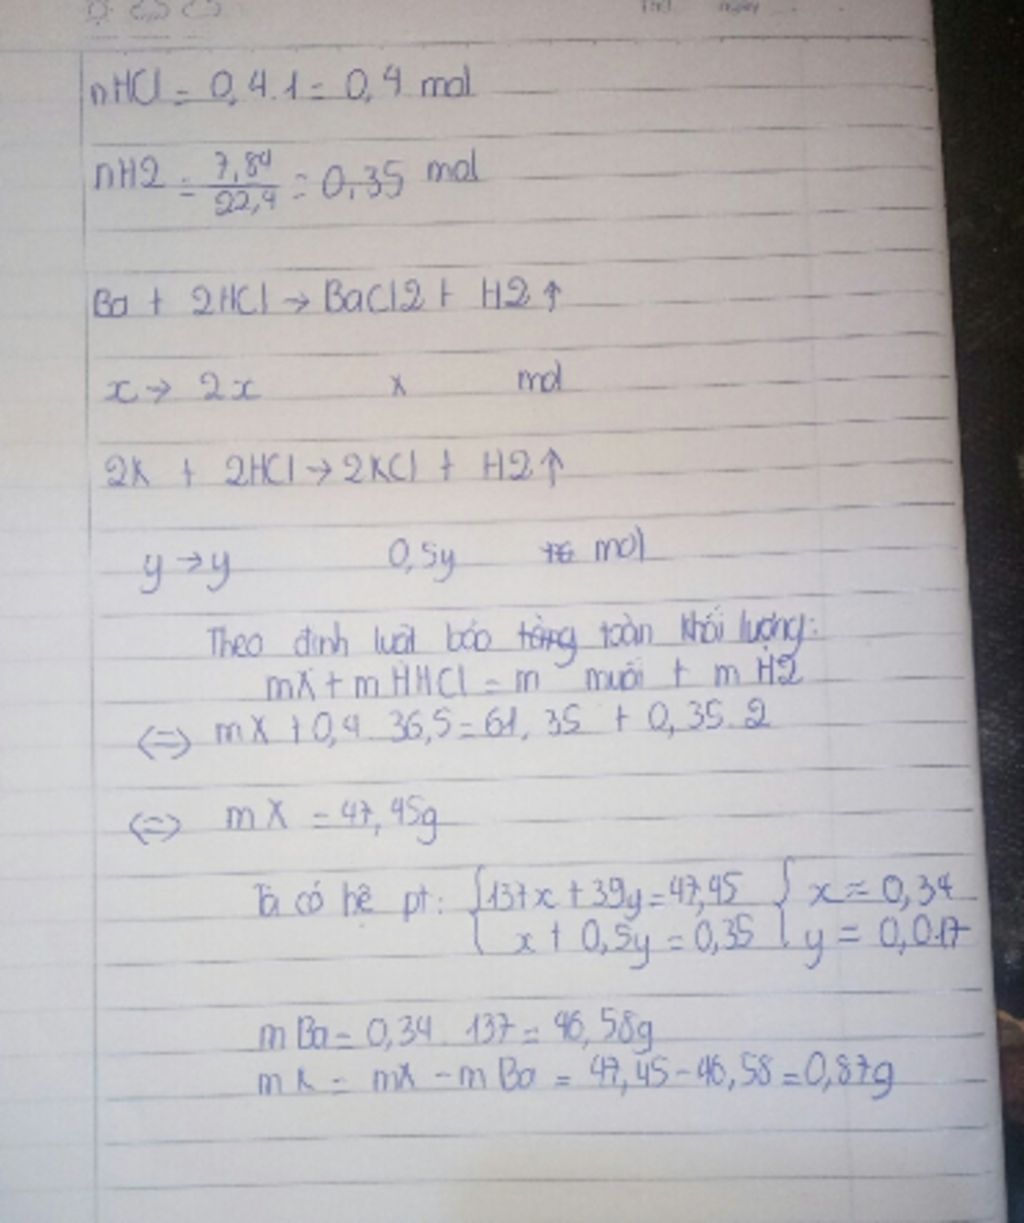 nHCl = 0,4.1 = 0,4 mol
nH2 = 7,84/22,4 = 0,35 mol
Ba + 2HCl → BaCl2 + H2 ↑
x → 2x x mol
2K + 2HCl → 2KCl + H2 ↑
y → y 0,5y mol
Theo định luật bảo toàn khối lượng:
mX + m HHCl = m muối + m H2
<=> mX + 0,4 36,5 = 61,35 + 0,35.2
<=> mX = 47,45g
Ta có hệ pt: { 137x + 39y = 47,45 { x = 0,34
x + 0,5y = 0,35 y = 0,017
mBa = 0,34 137 = 46,58g
mK = mX - mBa = 47,45 - 46,58 = 0,87g